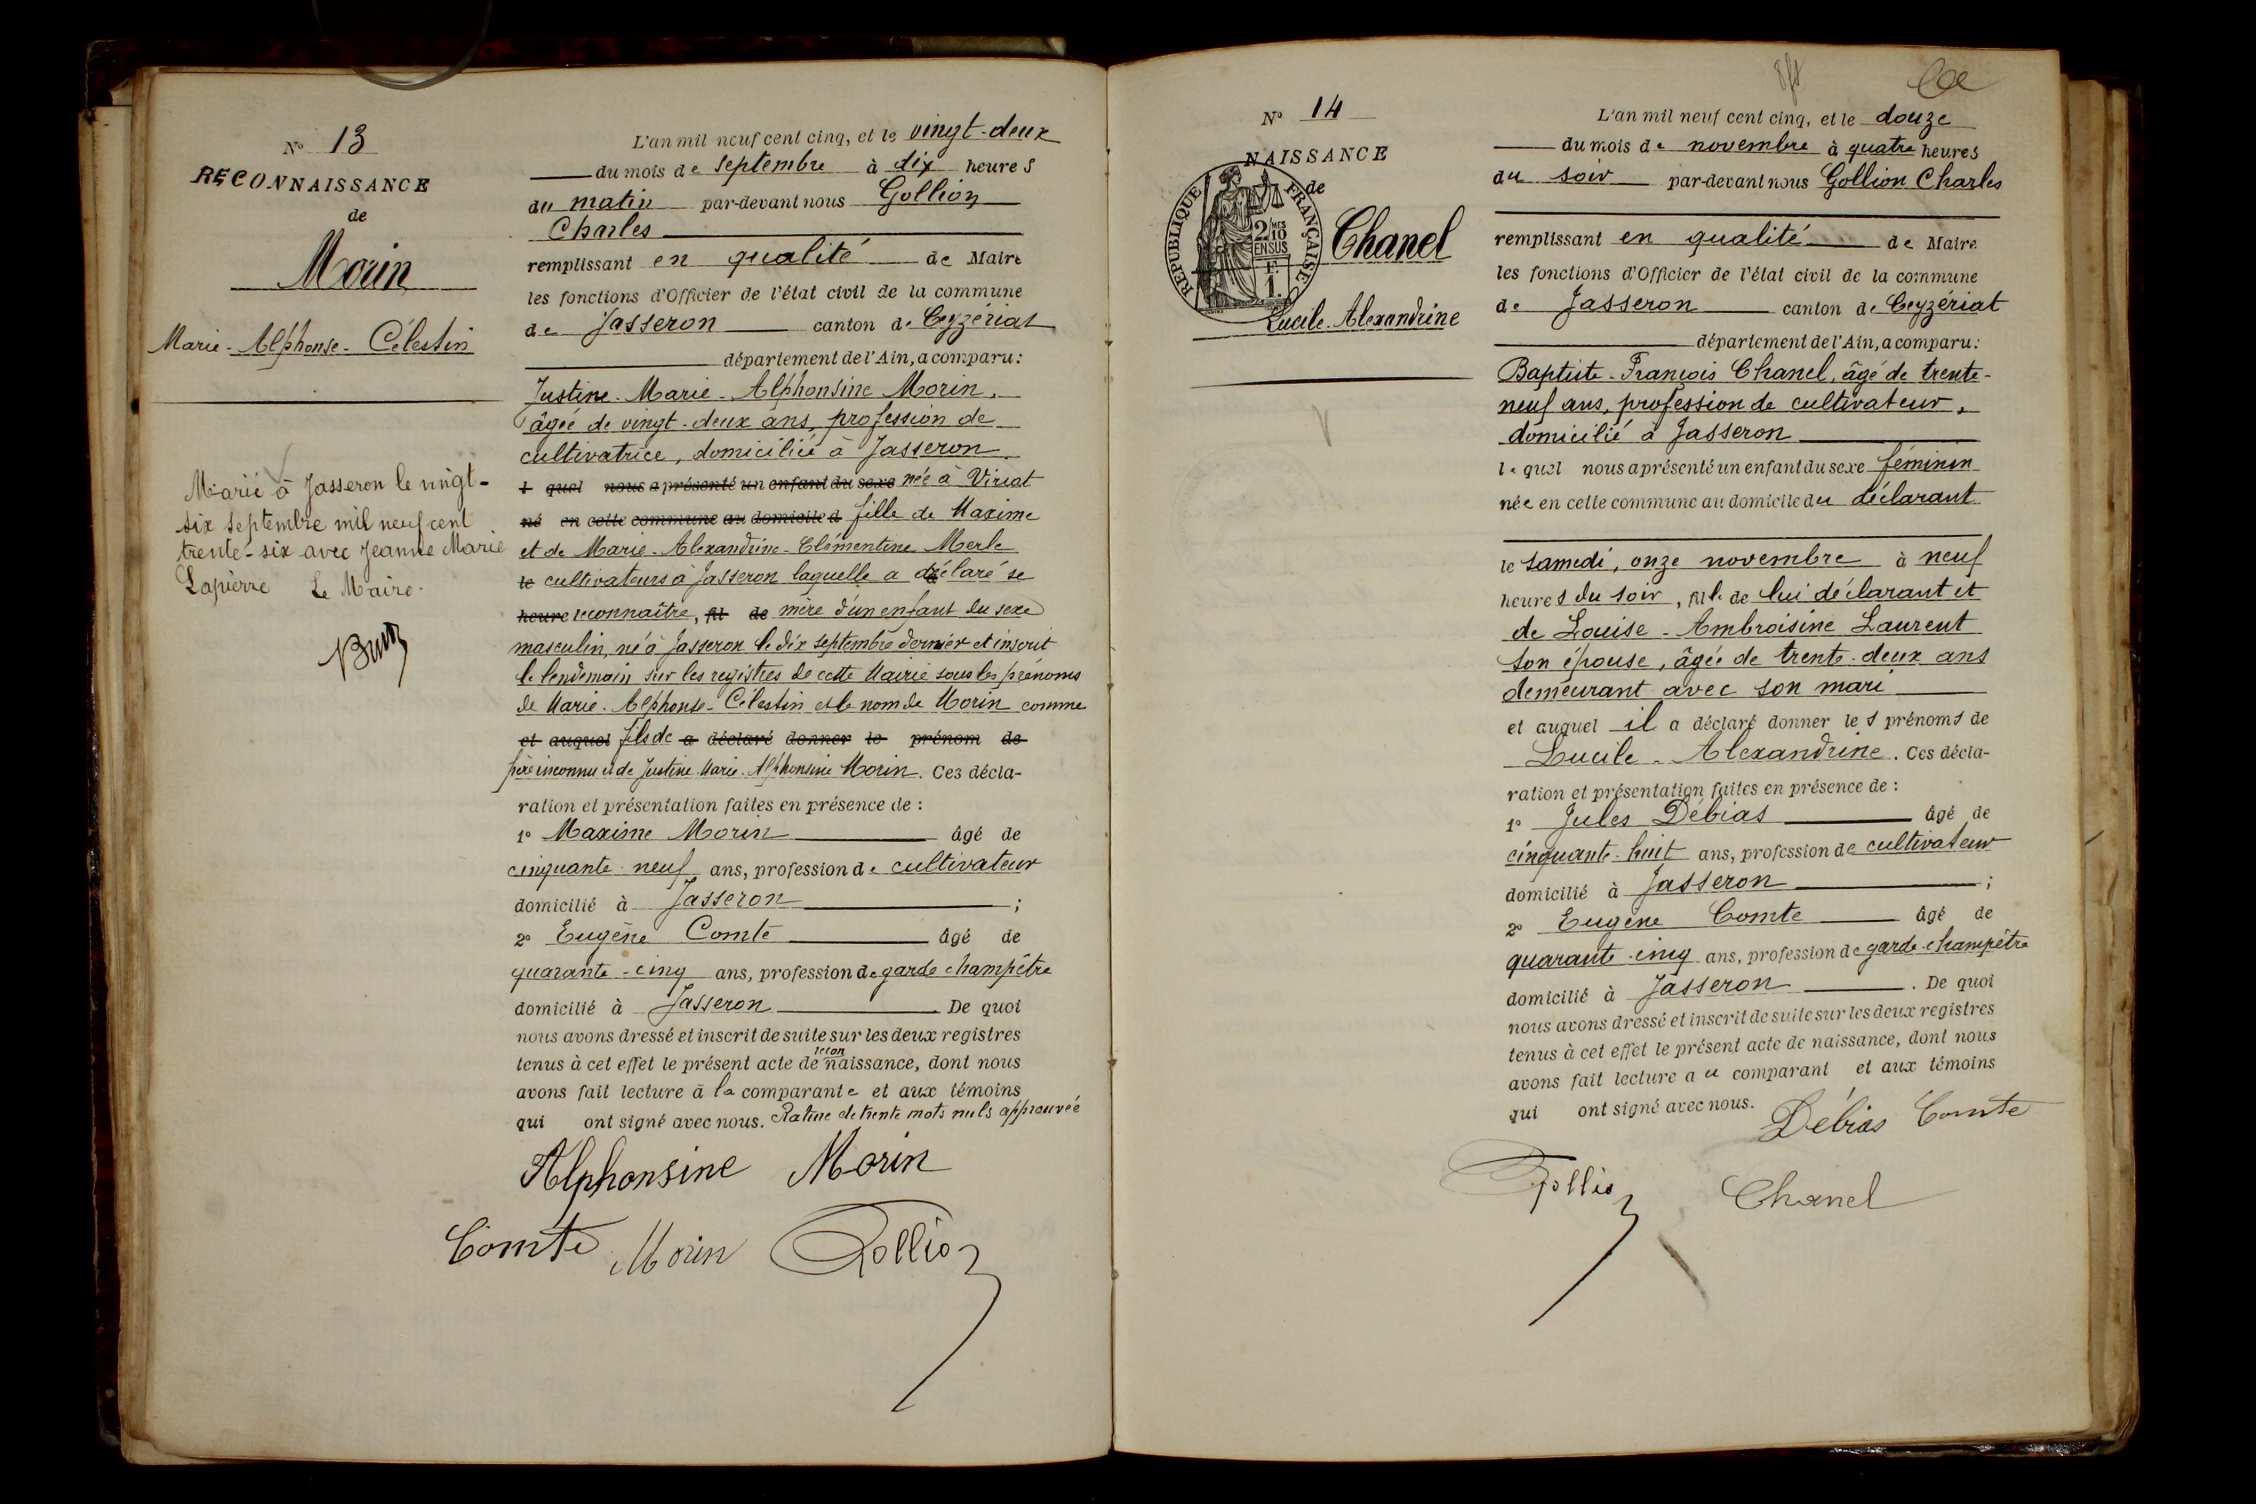 N° 13
RECONNAISSANCE
de
Morin
Marie-Alphonse-Célestin
Marié à Jasseron le vingt-
six septembre mil neuf cent
trente-six avec Jeanne Marie
Lapierre Le Maire.
L'an mil neuf cent cinq, et le vingt-deux
du mois de septembre à dix heures
du matin par-devant nous Gollion
Charles
remplissant en qualité de Maire
les fonctions d'Officier de l'état civil de la commune
de Jasseron canton de Ceyzériat
département de l'Ain, a comparu:
Justine-Marie-Alphonsine Morin,
âgée de vingt-deux ans, profession de
cultivatrice, domiciliée à Jasseron
l quel nous a présenté un enfant du sexe née à Viriat
né en cette commune au domicile d fille de Maxime
et de Marie-Alexandrine-Clémentine Merle
le cultivateurs à Jasseron laquelle a déclaré se
heure reconnaître, fil de mère d'un enfant du sexe
masculin, né à Jasseron le dix septembre dernier et inscrit
le lendemain sur les registres de cette Mairie sous les prénoms
de Marie-Alphonse-Célestin et le nom de Morin comme
et auquel fils de a déclaré donner le prénom de
père inconnu et de Justine-Marie-Alphonsine Morin. Ces décla-
ration et présentation faites en présence de :
1° Maxime Morin âgé de
cinquante-neuf ans, profession de cultivateur
domicilié à Jasseron ;
2° Eugène Comte âgé de
quarante-cinq ans, profession de garde champêtre
domicilié à Jasseron De quoi
nous avons dressé et inscrit de suite sur les deux registres
tenus à cet effet le présent acte de naissance, dont nous
avons fait lecture à la comparante et aux témoins
qui ont signé avec nous. Rature de trente mots nuls approuvée
Alphonsine Morin
Comte Morin Gollion
N° 14
NAISSANCE
de
REPUBLIQUE FRANÇAISE
2/10
EN SUS
1 F.
Chanel
Lucile-Alexandrine
L'an mil neuf cent cinq, et le douze
du mois de novembre à quatre heures
du soir par-devant nous Gollion Charles
remplissant en qualité de Maire
les fonctions d'Officier de l'état civil de la commune
de Jasseron canton de Ceyzériat
département de l'Ain, a comparu:
Baptiste-François Chanel, âgé de trente-
neuf ans, profession de cultivateur,
domicilié à Jasseron
lequel nous a présenté un enfant du sexe féminin
née en cette commune au domicile du déclarant
le samedi, onze novembre à neuf
heures du soir, fille de lui déclarant et
de Louise-Ambroisine Laurent
son épouse, âgée de trente-deux ans
demeurant avec son mari
et auquel il a déclaré donner les prénoms de
Lucile-Alexandrine. Ces décla-
ration et présentation faites en présence de :
1° Jules Débias âgé de
cinquante-huit ans, profession de cultivateur
domicilié à Jasseron ;
2° Eugène Comte âgé de
quarante-cinq ans, profession de garde-champêtre
domicilié à Jasseron . De quoi
nous avons dressé et inscrit de suite sur les deux registres
tenus à cet effet le présent acte de naissance, dont nous
avons fait lecture au comparant et aux témoins
qui ont signé avec nous.
Débias Comte
Gollion Chanel